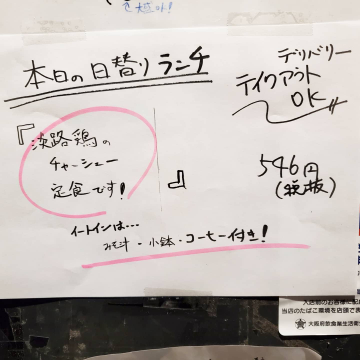 を応援!
本日の日替りランチ
デリバリー
テイクアウト
OK
『淡路鶏の
チャーシュー
定食です!
』
546円
(税抜)
イートインは…
みそ汁・小鉢・コーヒー付き!
大阪府飲食業生活衛